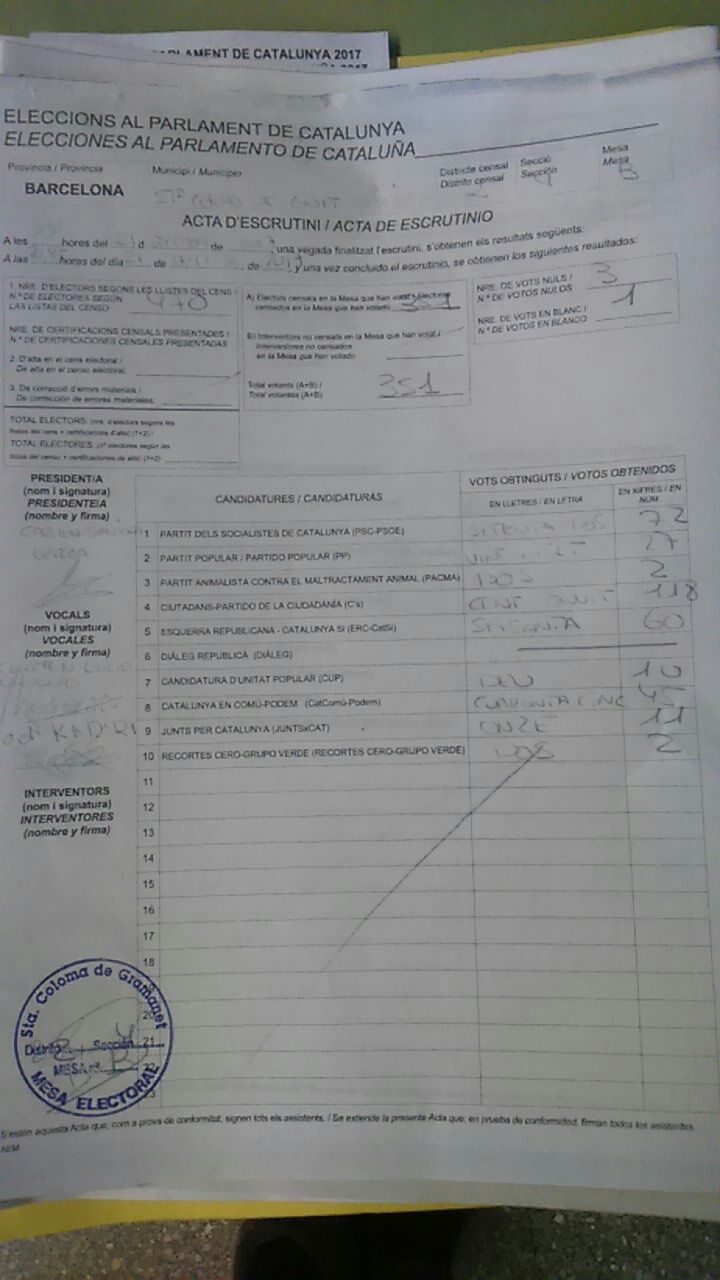 PARLAMENT DE CATALUNYA 2017
ELECCIONS AL PARLAMENT DE CATALUNYA
ELECCIONES AL PARLAMENTO DE CATALUÑA
Província / Provincia
Municipi / Municipio
Districte censal
Distrito censal
Secció
Sección
Mesa
Mesa
BARCELONA
B
ACTA D'ESCRUTINI / ACTA DE ESCRUTINIO
A les hores del d de , una vegada finalitzat l'escrutini, s'obtenen els resultats següents:
A las horas del día 21 de de 2017, y una vez concluido el escrutinio, se obtienen los siguientes resultados:
1. NRE. D'ELECTORS SEGONS LES LLISTES DEL CENS /
N.º DE ELECTORES SEGÚN
LAS LISTAS DEL CENSO 470
NRE. DE CERTIFICACIONS CENSALS PRESENTADES /
N.º DE CERTIFICACIONES CENSALES PRESENTADAS
2. D'alta en el cens electoral /
De alta en el censo electoral
3. De correcció d'errors materials /
De corrección de errores materiales
TOTAL ELECTORS: (nre. d'electors segons les
llistes del cens + certificacions d'alta) (1+2) /
TOTAL ELECTORES: (nº electores según las
listas del censo + certificaciones de alta) (1+2)
A) Electors censats en la Mesa que han votat / Electores
censados en la Mesa que han votado 351
B) Interventors no censats en la Mesa que han votat /
Interventores no censados
en la Mesa que han votado
Total votants (A+B) /
Total votantes (A+B) 351
NRE. DE VOTS NULS /
N.º DE VOTOS NULOS 3
NRE. DE VOTS EN BLANC /
N.º DE VOTOS EN BLANCO 1
PRESIDENT/A
(nom i signatura)
PRESIDENTE/A
(nombre y firma)
VOCALS
(nom i signatura)
VOCALES
(nombre y firma)
KADIRI
INTERVENTORS
(nom i signatura)
INTERVENTORES
(nombre y firma)
CANDIDATURES / CANDIDATURAS
VOTS OBTINGUTS / VOTOS OBTENIDOS
EN LLETRES / EN LETRA
EN XIFRES / EN NÚM
1 PARTIT DELS SOCIALISTES DE CATALUNYA (PSC-PSOE) SETENTA DOS 72
2 PARTIT POPULAR / PARTIDO POPULAR (PP) VINT I SET 27
3 PARTIT ANIMALISTA CONTRA EL MALTRACTAMENT ANIMAL (PACMA) DOS 2
4 CIUTADANS-PARTIDO DE LA CIUDADANÍA (C's) 118
5 ESQUERRA REPUBLICANA - CATALUNYA SÍ (ERC-CatSí) 60
6 DIÀLEG REPUBLICÀ (DIÀLEG)
7 CANDIDATURA D'UNITAT POPULAR (CUP) DEU 10
8 CATALUNYA EN COMÚ-PODEM (CatComú-Podem) 45
9 JUNTS PER CATALUNYA (JUNTSxCAT) ONZE 11
10 RECORTES CERO-GRUPO VERDE (RECORTES CERO-GRUPO VERDE) DOS 2
11
12
13
14
15
16
17
18
20
21
Sta. Coloma de Gramanet
Distrito Sección
MESA nº
MESA ELECTORAL
S'estén aquesta Acta que, com a prova de conformitat, signen tots els assistents. / Se extiende la presente Acta que, en prueba de conformidad, firman todos los asistentes.